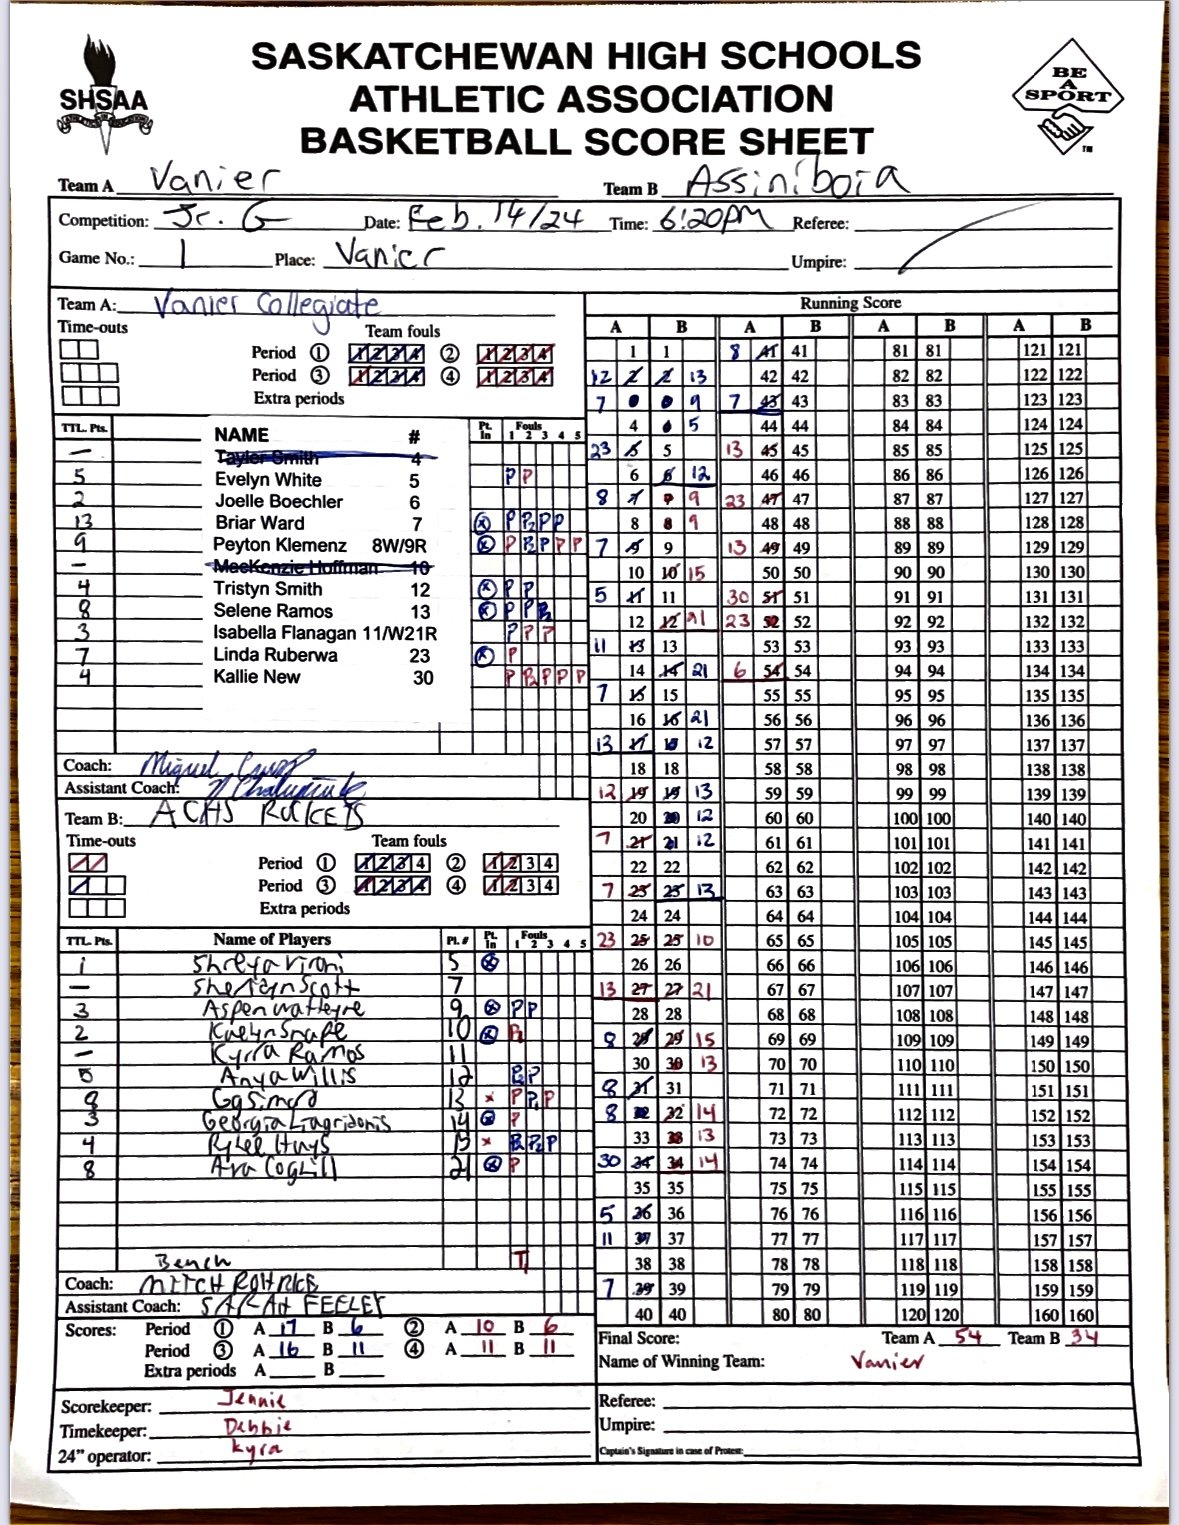 SASKATCHEWAN HIGH SCHOOLS
ATHLETIC ASSOCIATION
BASKETBALL SCORE SHEET
SHSAA
BE A SPORT
TM
Team A Vanier Team B Assiniboia
Competition: Jr. G Date: Feb. 14/24 Time: 6:20pm Referee:
Game No.: 1 Place: Vanier Umpire:
Team A: Vanier Collegiate
Time-outs Team fouls
Period 1 1 2 3 4 2 1 2 3 4
Period 3 1 2 3 4 4 1 2 3 4
Extra periods
TTL. Pts. NAME # Pt. In Fouls 1 2 3 4 5
- Tayler Smith 4
5 Evelyn White 5 P P
2 Joelle Boechler 6
13 Briar Ward 7 X P P2 P P
9 Peyton Klemenz 8W/9R X P P2 P P P
- MacKenzie Hoffman 10
4 Tristyn Smith 12 X P P
8 Selene Ramos 13 X P P P2
3 Isabella Flanagan 11/W21R P P P
7 Linda Ruberwa 23 X P
4 Kallie New 30 P P2 P P P
Coach: Miguel
Assistant Coach:
Team B: ACHS ROCKETS
Time-outs Team fouls
Period 1 1 2 3 4 2 1 2 3 4
Period 3 1 2 3 4 4 1 2 3 4
Extra periods
TTL. Pts. Name of Players Pl. # Pt. In Fouls 1 2 3 4 5
1 Shreya Virani 5 X
- Sheridyn Scott 7
3 Aspen 9 X P P
2 Kaelyn Snape 10 X P2
- Kyrra Ramos 11
5 Anya Willis 12 P2 P
8 13 x P P2 P
3 Georgia 14 X P
4 Rylee Hays 15 x P2 P2 P
8 Ava Coghill 21 X P
Bench T
Coach: MITCH
Assistant Coach: SARAH FEELEY
Scores: Period 1 A 17 B 6 2 A 10 B 6
Period 3 A 16 B 11 4 A 11 B 11
Extra periods A B
Scorekeeper: Jennie
Timekeeper: Debbie
24" operator: Kyra
Running Score
A B A B A B A B
1 1 8 41 41 81 81 121 121
12 2 2 13 42 42 82 82 122 122
7 3 3 9 7 43 43 83 83 123 123
4 4 5 44 44 84 84 124 124
23 5 5 13 45 45 85 85 125 125
6 6 12 46 46 86 86 126 126
8 7 7 9 23 47 47 87 87 127 127
8 8 9 48 48 88 88 128 128
7 9 9 13 49 49 89 89 129 129
10 10 15 50 50 90 90 130 130
5 11 11 30 51 51 91 91 131 131
12 12 21 23 52 52 92 92 132 132
11 13 13 53 53 93 93 133 133
14 14 21 6 54 54 94 94 134 134
7 15 15 55 55 95 95 135 135
16 16 21 56 56 96 96 136 136
13 17 12 57 57 97 97 137 137
18 18 58 58 98 98 138 138
12 19 19 13 59 59 99 99 139 139
20 20 12 60 60 100 100 140 140
7 21 21 12 61 61 101 101 141 141
22 22 62 62 102 102 142 142
7 23 23 13 63 63 103 103 143 143
24 24 64 64 104 104 144 144
23 25 25 10 65 65 105 105 145 145
26 26 66 66 106 106 146 146
13 27 27 21 67 67 107 107 147 147
28 28 68 68 108 108 148 148
8 29 29 15 69 69 109 109 149 149
30 30 13 70 70 110 110 150 150
8 31 31 71 71 111 111 151 151
8 32 32 14 72 72 112 112 152 152
33 33 13 73 73 113 113 153 153
30 34 34 14 74 74 114 114 154 154
35 35 75 75 115 115 155 155
5 36 36 76 76 116 116 156 156
11 37 37 77 77 117 117 157 157
38 38 78 78 118 118 158 158
7 39 39 79 79 119 119 159 159
40 40 80 80 120 120 160 160
Final Score: Team A 54 Team B 34
Name of Winning Team: Vanier
Referee:
Umpire:
Captain's Signature in case of Protest: